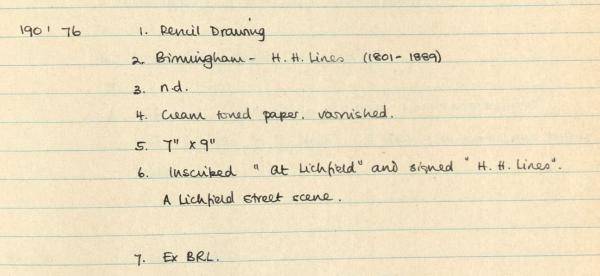 190' 76 1. Pencil Drawing
2. Birmingham - H. H. Lines (1801-1889)
3. n.d.
4. Cream toned paper. varnished.
5. 7" x 9"
6. Inscribed "at Lichfield" and signed "H. H. Lines".
A Lichfield street scene.
7. Ex BRL.